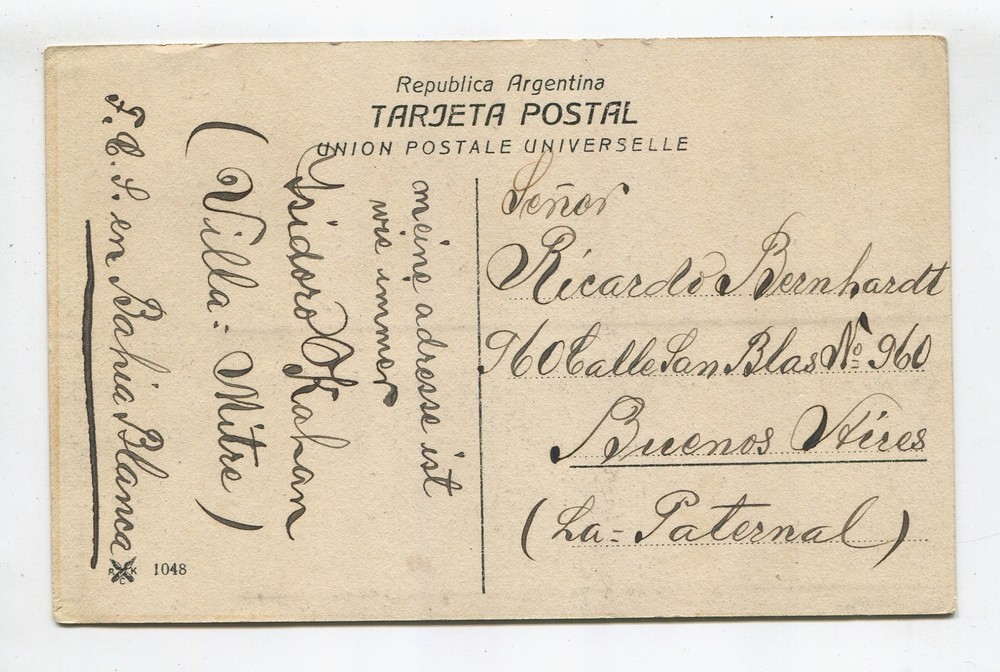 Republica Argentina
TARJETA POSTAL
UNION POSTALE UNIVERSELLE
meine adresse ist
wie immer
Ysidoro Kahan
(Villa: Mitre)
F. C. S. en Bahia Blanca
1048
Señor
Ricardo Bernhardt
960 Calle San Blas No 960
Buenos Aires
(La = Paternal)